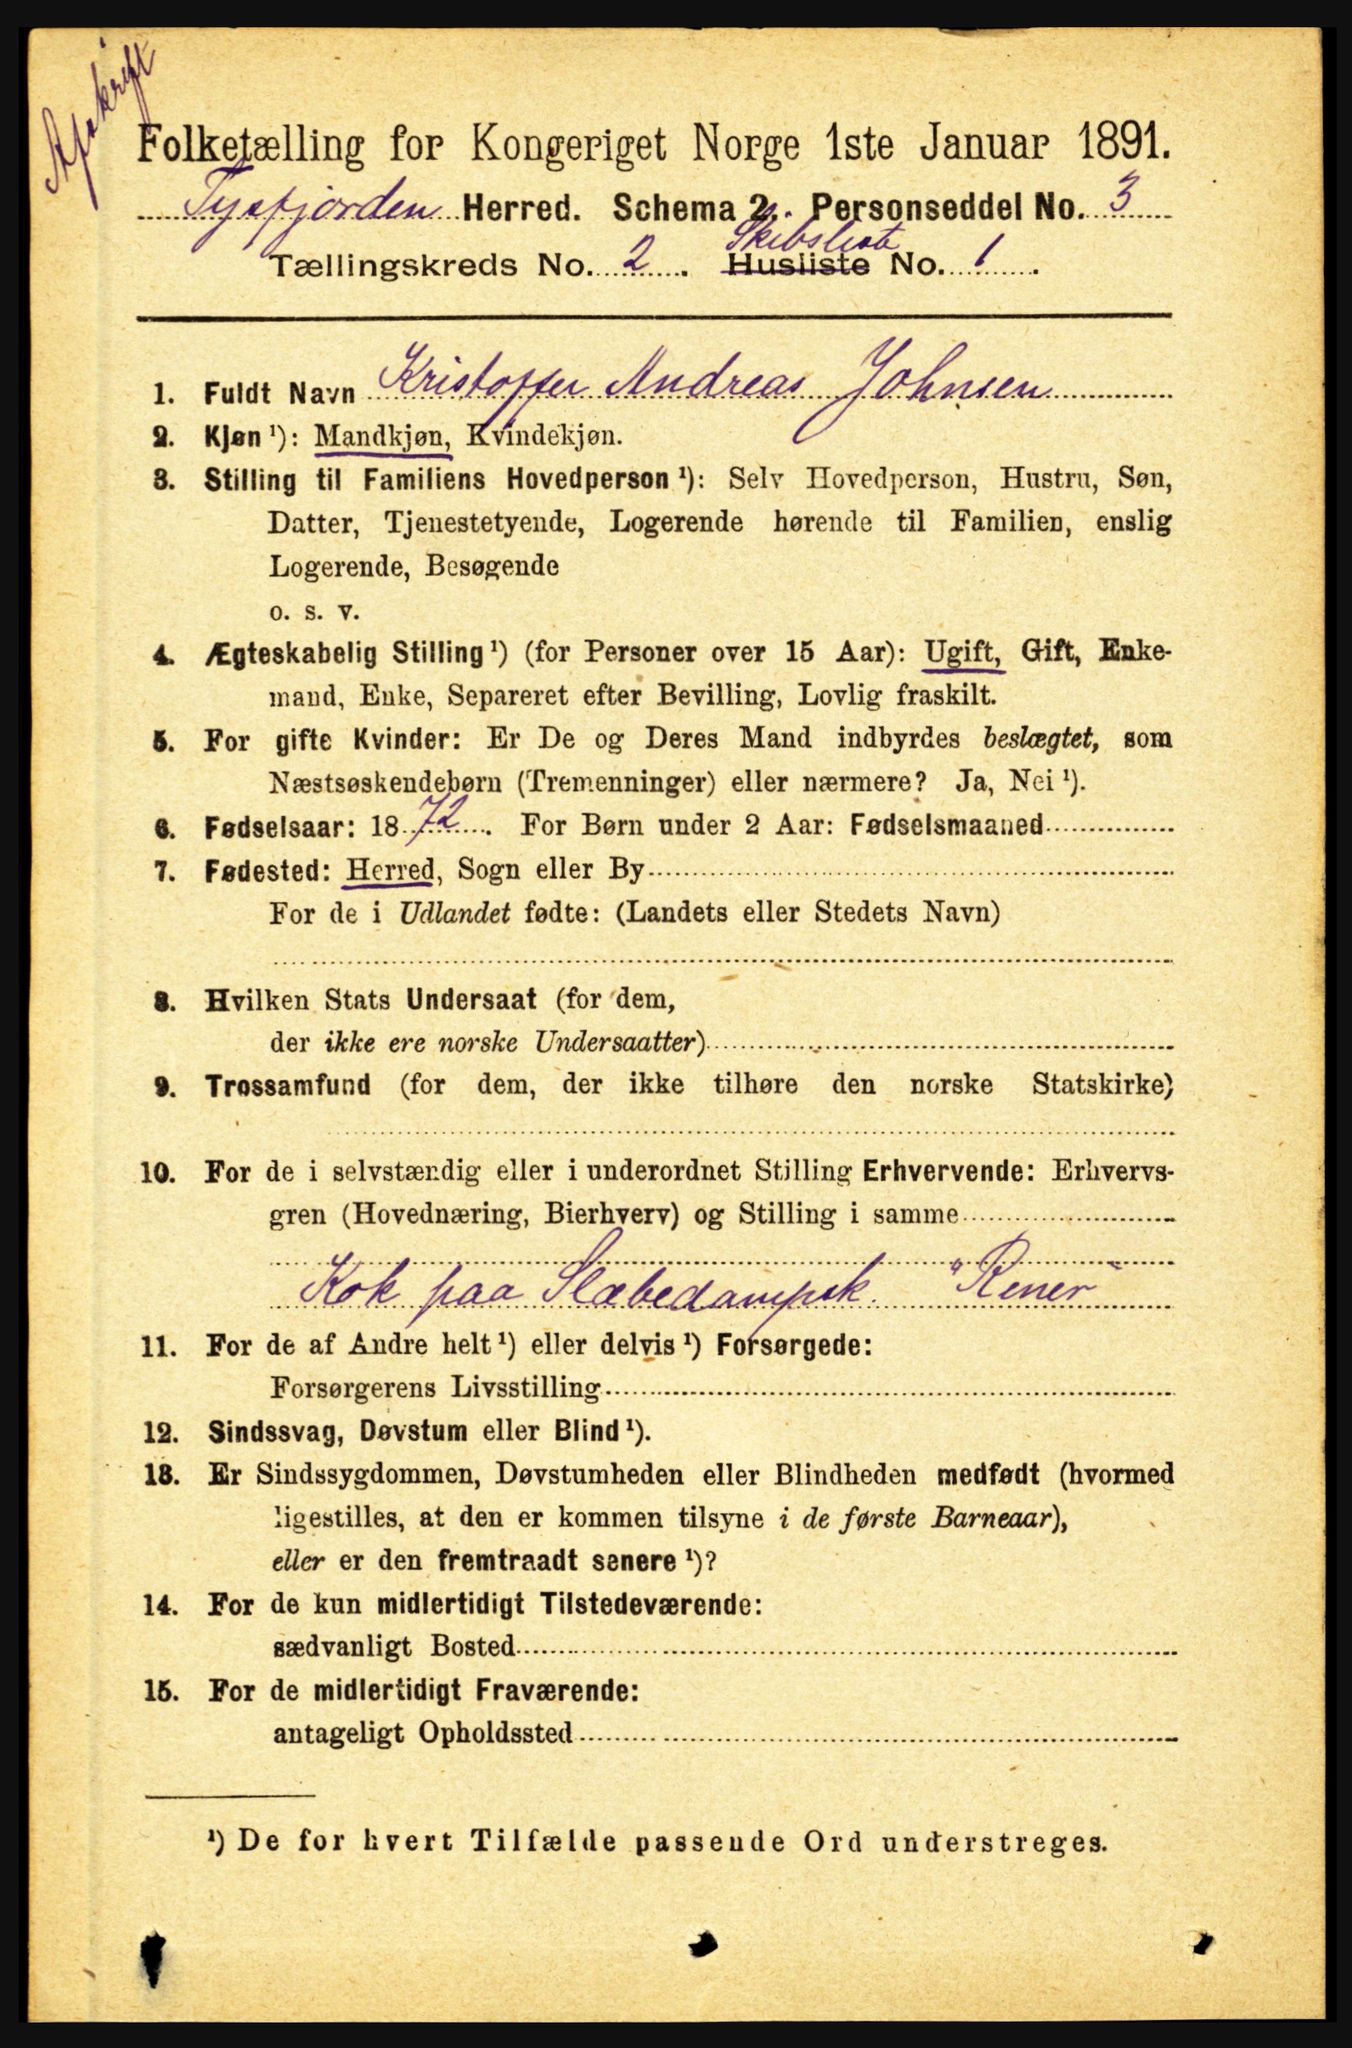 Afskrift
Folketælling for Kongeriget Norge 1ste Januar 1891.
Tysfjorden Herred. Schema 2. Personseddel No. 3
Skibsliste
Tællingskreds No. 2. Husliste No. 1.
1. Fuldt Navn Kristoffer Andreas Johnsen
2. Kjøn ¹): Mandkjøn, Kvindekjøn.
3. Stilling til Familiens Hovedperson ¹): Selv Hovedperson, Hustru, Søn,
Datter, Tjenestetyende, Logerende hørende til Familien, enslig
Logerende, Besøgende
o. s. v.
4. Ægteskabelig Stilling ¹) (for Personer over 15 Aar): Ugift, Gift, Enke-
mand, Enke, Separeret efter Bevilling, Lovlig fraskilt.
5. For gifte Kvinder: Er De og Deres Mand indbyrdes beslægtet, som
Næstsøskendebørn (Tremenninger) eller nærmere? Ja, Nei ¹).
6. Fødselsaar: 1872. For Børn under 2 Aar: Fødselsmaaned
7. Fødested: Herred, Sogn eller By
For de i Udlandet fødte: (Landets eller Stedets Navn)
8. Hvilken Stats Undersaat (for dem,
der ikke ere norske Undersaatter)
9. Trossamfund (for dem, der ikke tilhøre den norske Statskirke)
10. For de i selvstændig eller i underordnet Stilling Erhvervende: Erhvervs-
gren (Hovednæring, Bierhverv) og Stilling i samme
Kok paa Slæbedampsk. "Rener"
11. For de af Andre helt ¹) eller delvis ¹) Forsørgede:
Forsørgerens Livsstilling
12. Sindssvag, Døvstum eller Blind ¹).
13. Er Sindssygdommen, Døvstumheden eller Blindheden medfødt (hvormed
ligestilles, at den er kommen tilsyne i de første Barneaar),
eller er den fremtraadt senere ¹)?
14. For de kun midlertidigt Tilstedeværende:
sædvanligt Bosted
15. For de midlertidigt Fraværende:
antageligt Opholdssted
¹) De for hvert Tilfælde passende Ord understreges.